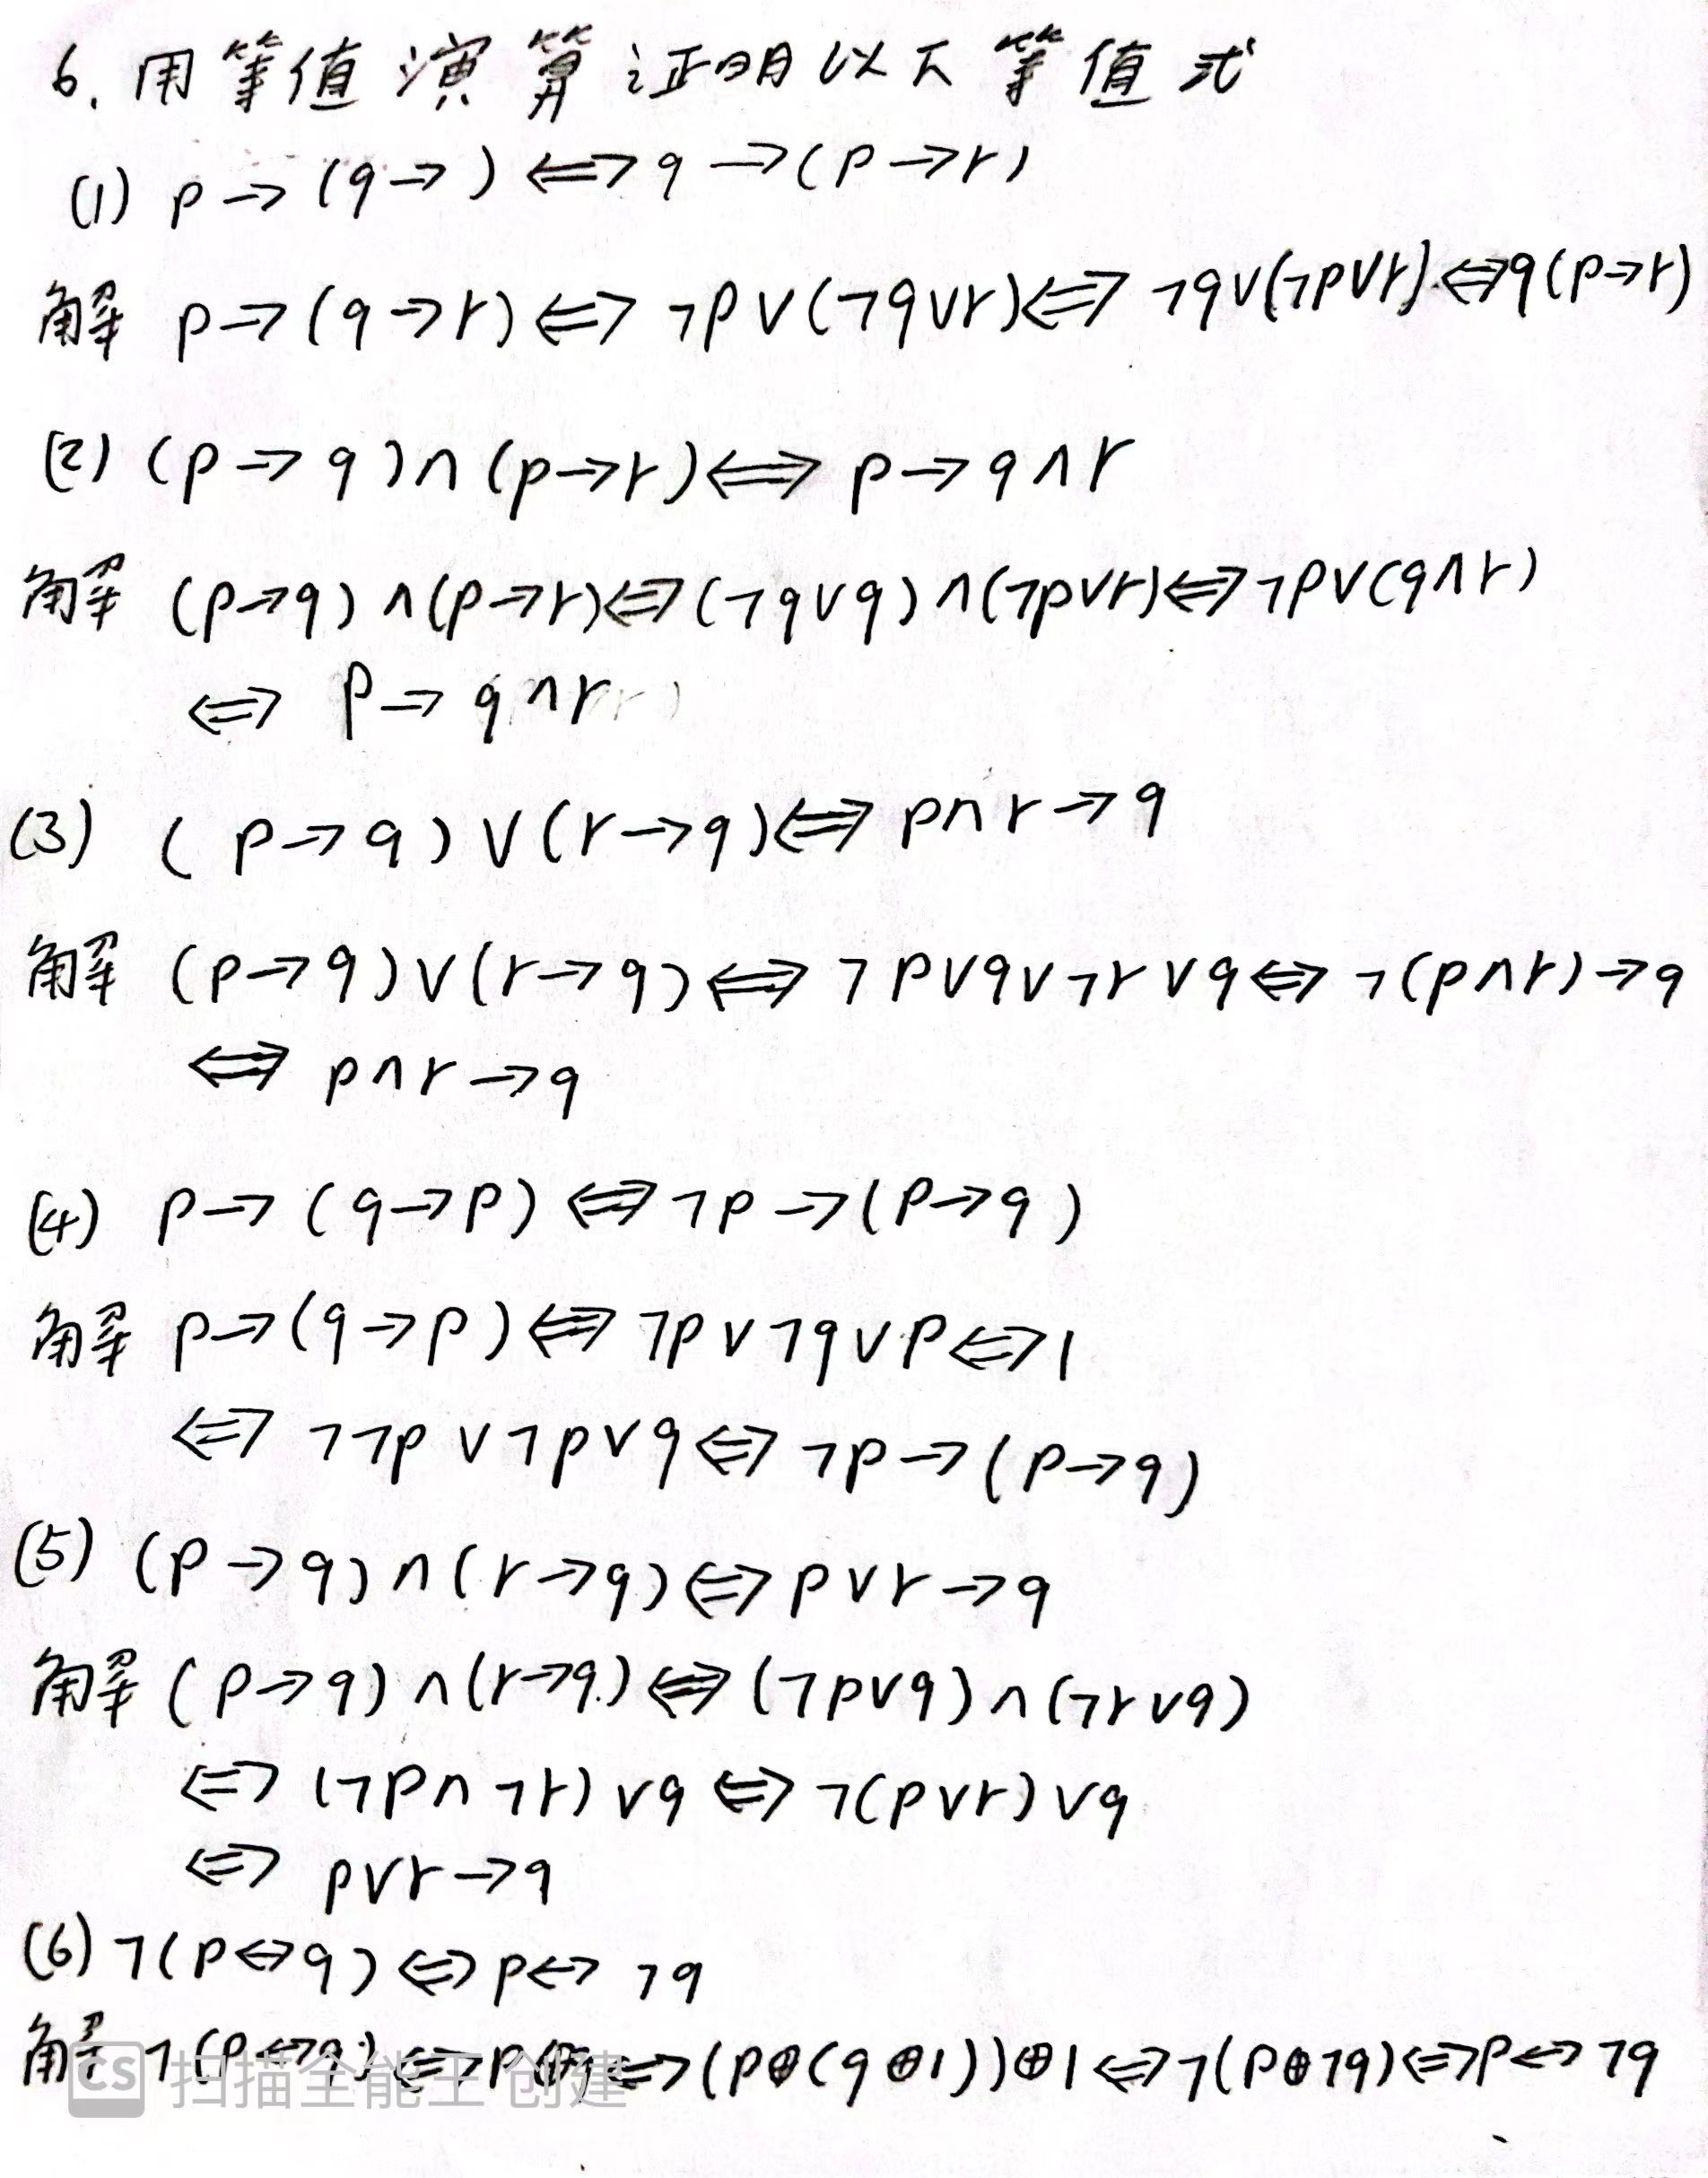 6. 用等值演算证明以下等值式
(1) p→(q→ )⟺q→(p→r)
解 p→(q→r)⟺¬p∨(¬q∨r)⟺¬q∨(¬p∨r)⟺q(p→r)
(2) (p→q)∧(p→r)⟺p→q∧r
解 (p→q)∧(p→r)⟺(¬q∨q)∧(¬p∨r)⟺¬p∨(q∧r)
⟺ p→q∧r
(3) (p→q)∨(r→q)⟺p∧r→q
解 (p→q)∨(r→q)⟺¬p∨q∨¬r∨q⟺¬(p∧r)→q
⟺ p∧r→q
(4) p→(q→p)⟺¬p→(p→q)
解 p→(q→p)⟺¬p∨¬q∨p⟺1
⟺ ¬¬p∨¬p∨q⟺¬p→(p→q)
(5) (p→q)∧(r→q)⟺p∨r→q
解 (p→q)∧(r→q)⟺(¬p∨q)∧(¬r∨q)
⟺ (¬p∧¬r)∨q⟺¬(p∨r)∨q
⟺ p∨r→q
(6) ¬(p↔q)⟺p↔¬q
解 ¬(p↔q)⟺p⊕q⟺(p⊕(q⊕1))⊕1⟺¬(p⊕¬q)⟺p↔¬q
CS 扫描全能王 创建